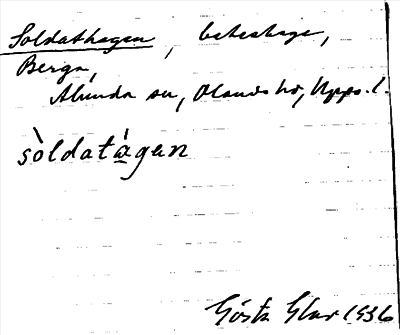 Soldathagen, beteshage,
Berga,
Alunda sn, Olands hd, Upps. l.
sòldatàgan
Gösta Glar 1936